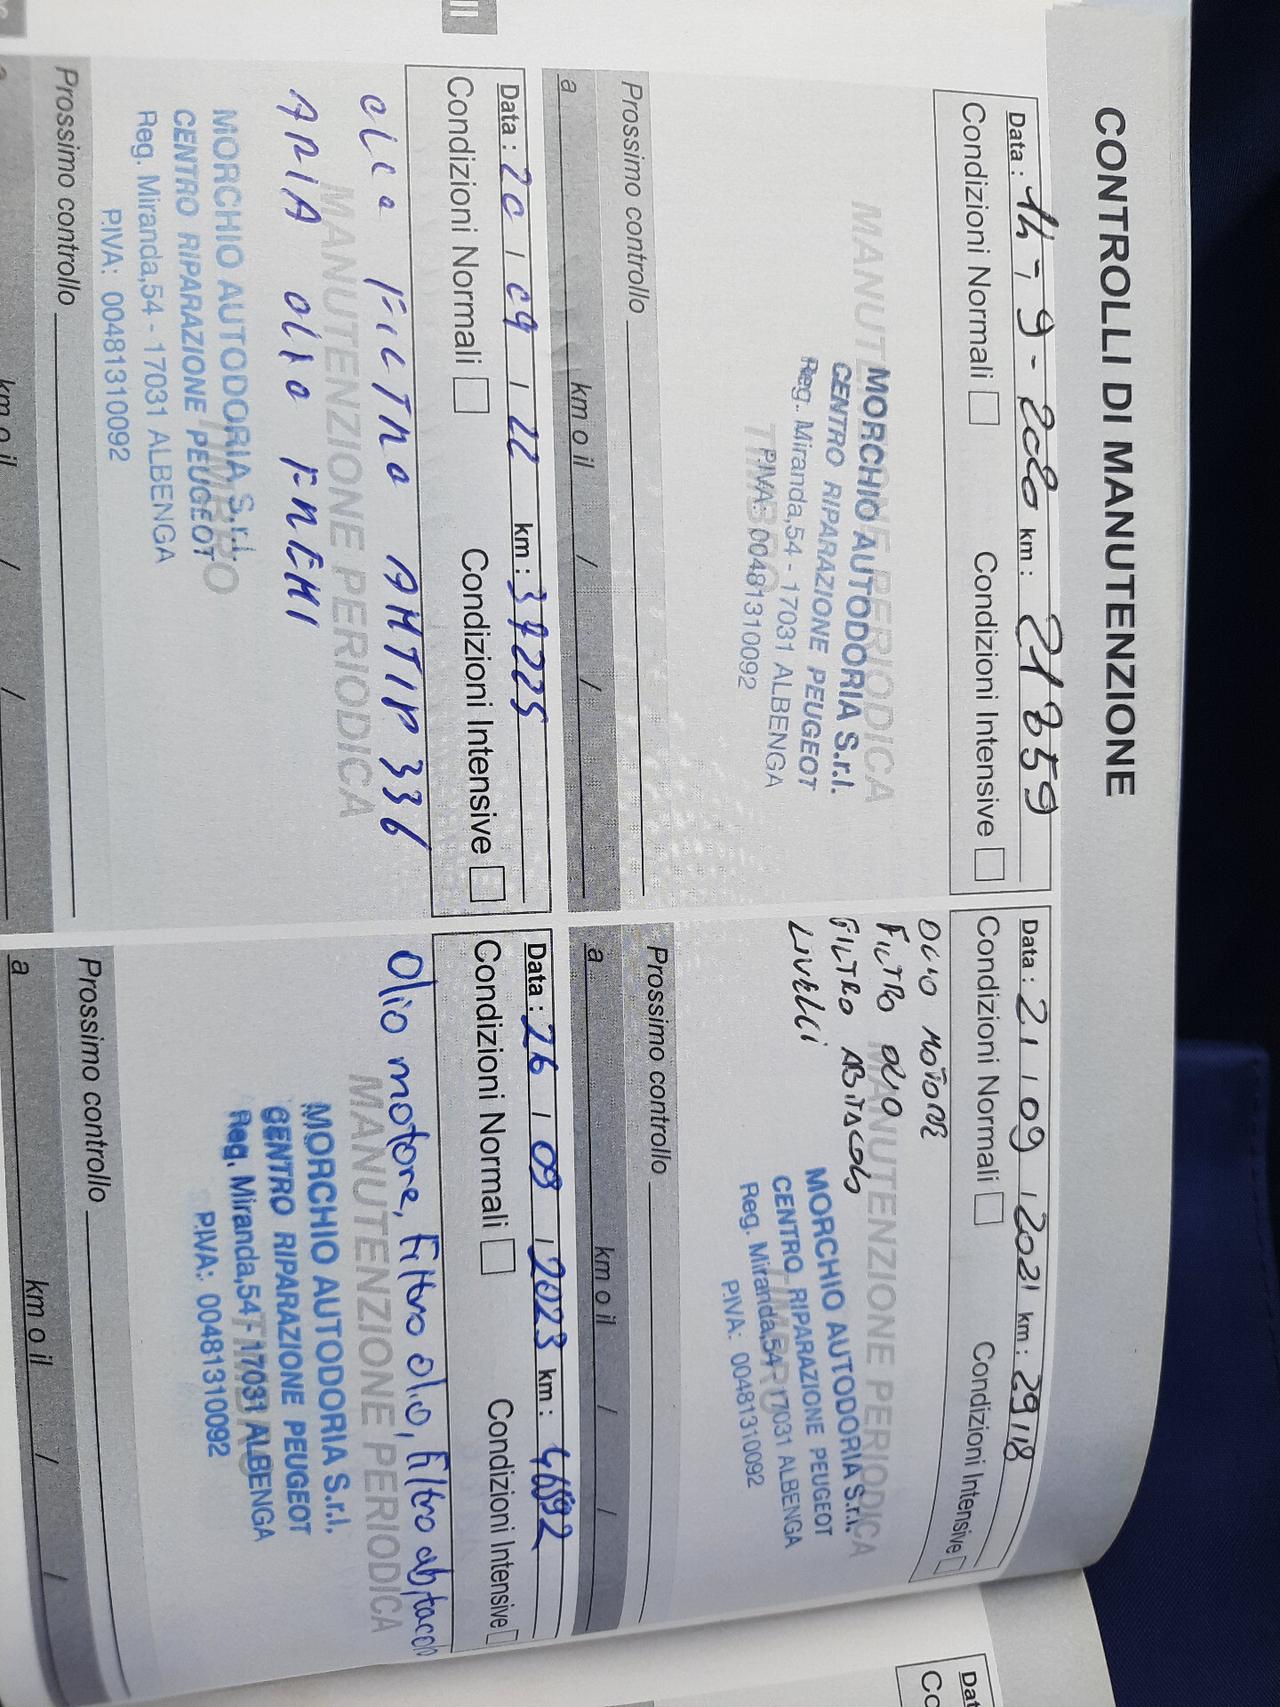 CONTROLLI DI MANUTENZIONE
Data : 14 - 9 - 2020 km : 21859
Condizioni Normali Condizioni Intensive
MANUTENZIONE PERIODICA
MORCHIO AUTODORIA S.r.l.
CENTRO RIPARAZIONE PEUGEOT
Reg. Miranda,54 - 17031 ALBENGA
TIMBRO
P.IVA: 00481310092
Prossimo controllo
a km o il / /
Data : 21 / 09 / 2021 km : 29118
Condizioni Normali Condizioni Intensive
OLIO MOTORE
FILTRO OLIO
FILTRO ABITACOLO
LIVELLI
MANUTENZIONE PERIODICA
MORCHIO AUTODORIA S.r.l.
CENTRO RIPARAZIONE PEUGEOT
TIMBRO
Reg. Miranda,54 - 17031 ALBENGA
P.IVA: 00481310092
Prossimo controllo
a km o il / /
Data : 20 / 09 / 22 km : 37225
Condizioni Normali Condizioni Intensive
FILTRO
ARIA olio FRENI
MANUTENZIONE PERIODICA
MORCHIO AUTODORIA S.r.l.
TIMBRO
CENTRO RIPARAZIONE PEUGEOT
Reg. Miranda,54 - 17031 ALBENGA
P.IVA: 00481310092
Prossimo controllo
a km o il / /
Data : 26 / 09 / 2023 km :
Condizioni Normali Condizioni Intensive
Olio motore, filtro olio, filtro abitacolo
MANUTENZIONE PERIODICA
MORCHIO AUTODORIA S.r.l.
CENTRO RIPARAZIONE PEUGEOT
Reg. Miranda,54 - 17031 ALBENGA
TIMBRO
P.IVA: 00481310092
Prossimo controllo
a km o il / /
II
Data
Co